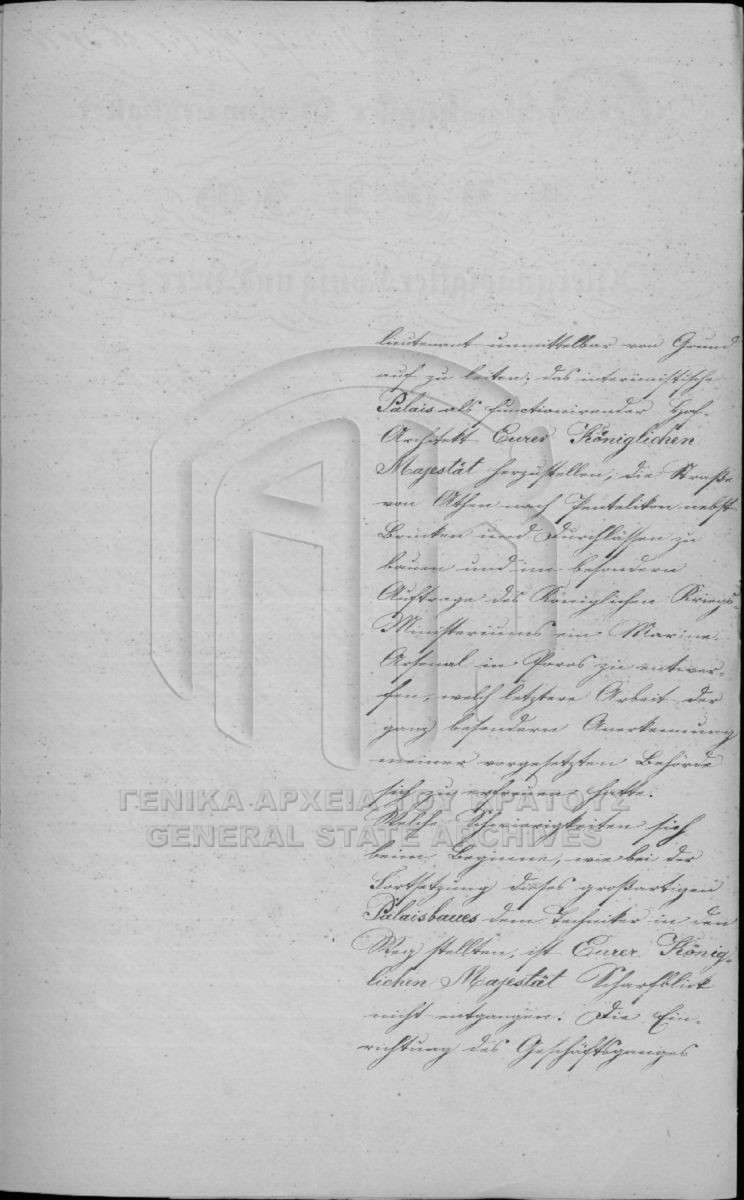 lieutenant unmittelbar von Grund
auf zu leiten; das interimistische
Palais als functionirender Hof-
Architekt Eurer Königlichen
Majestät herzustellen; die Straße
von Athen nach Pentelikon nebst
Brücken und Durchlässen zu
bauen und im besondern
Auftrage des Königlichen Kriegs-
Ministeriums ein Marine-
Arsenal in Poros zu entwer-
fen, welch letztere Arbeit der
ganz besondern Anerkennung
meiner vorgesetzten Behörde
sich zu erfreuen hatte.
ΓΕΝΙΚΑ ΑΡΧΕΙΑ ΤΟΥ ΚΡΑΤΟΥΣ
GENERAL STATE ARCHIVES
Welche Schwierigkeiten sich
beim Beginne, wie bei der
Fortsetzung dieses großartigen
Palaisbaues dem Techniker in den
Weg stellten, ist Eurer König-
lichen Majestät Scharfblick
nicht entgangen. Die Ein-
richtung des Geschäftsganges